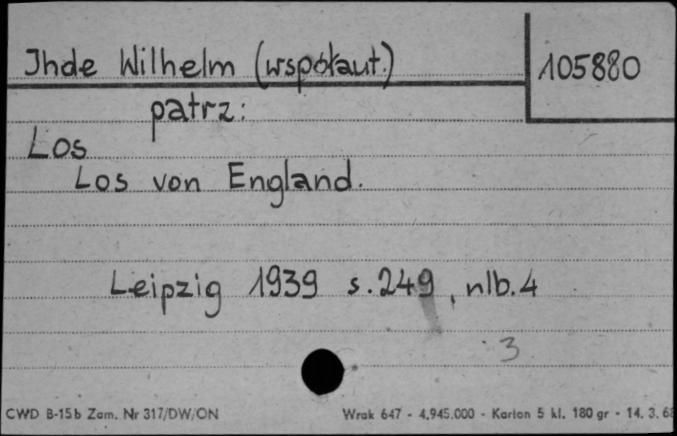 Ihde Wilhelm (współaut.)
105880
patrz:
Los
Los von England.
Leipzig 1939 s.249, nlb.4
3
CWD B-15b Zam. Nr 317/DW/ON
Wrak 647 - 4.945.000 - Karton 5 kl. 180 gr - 14. 3. 68